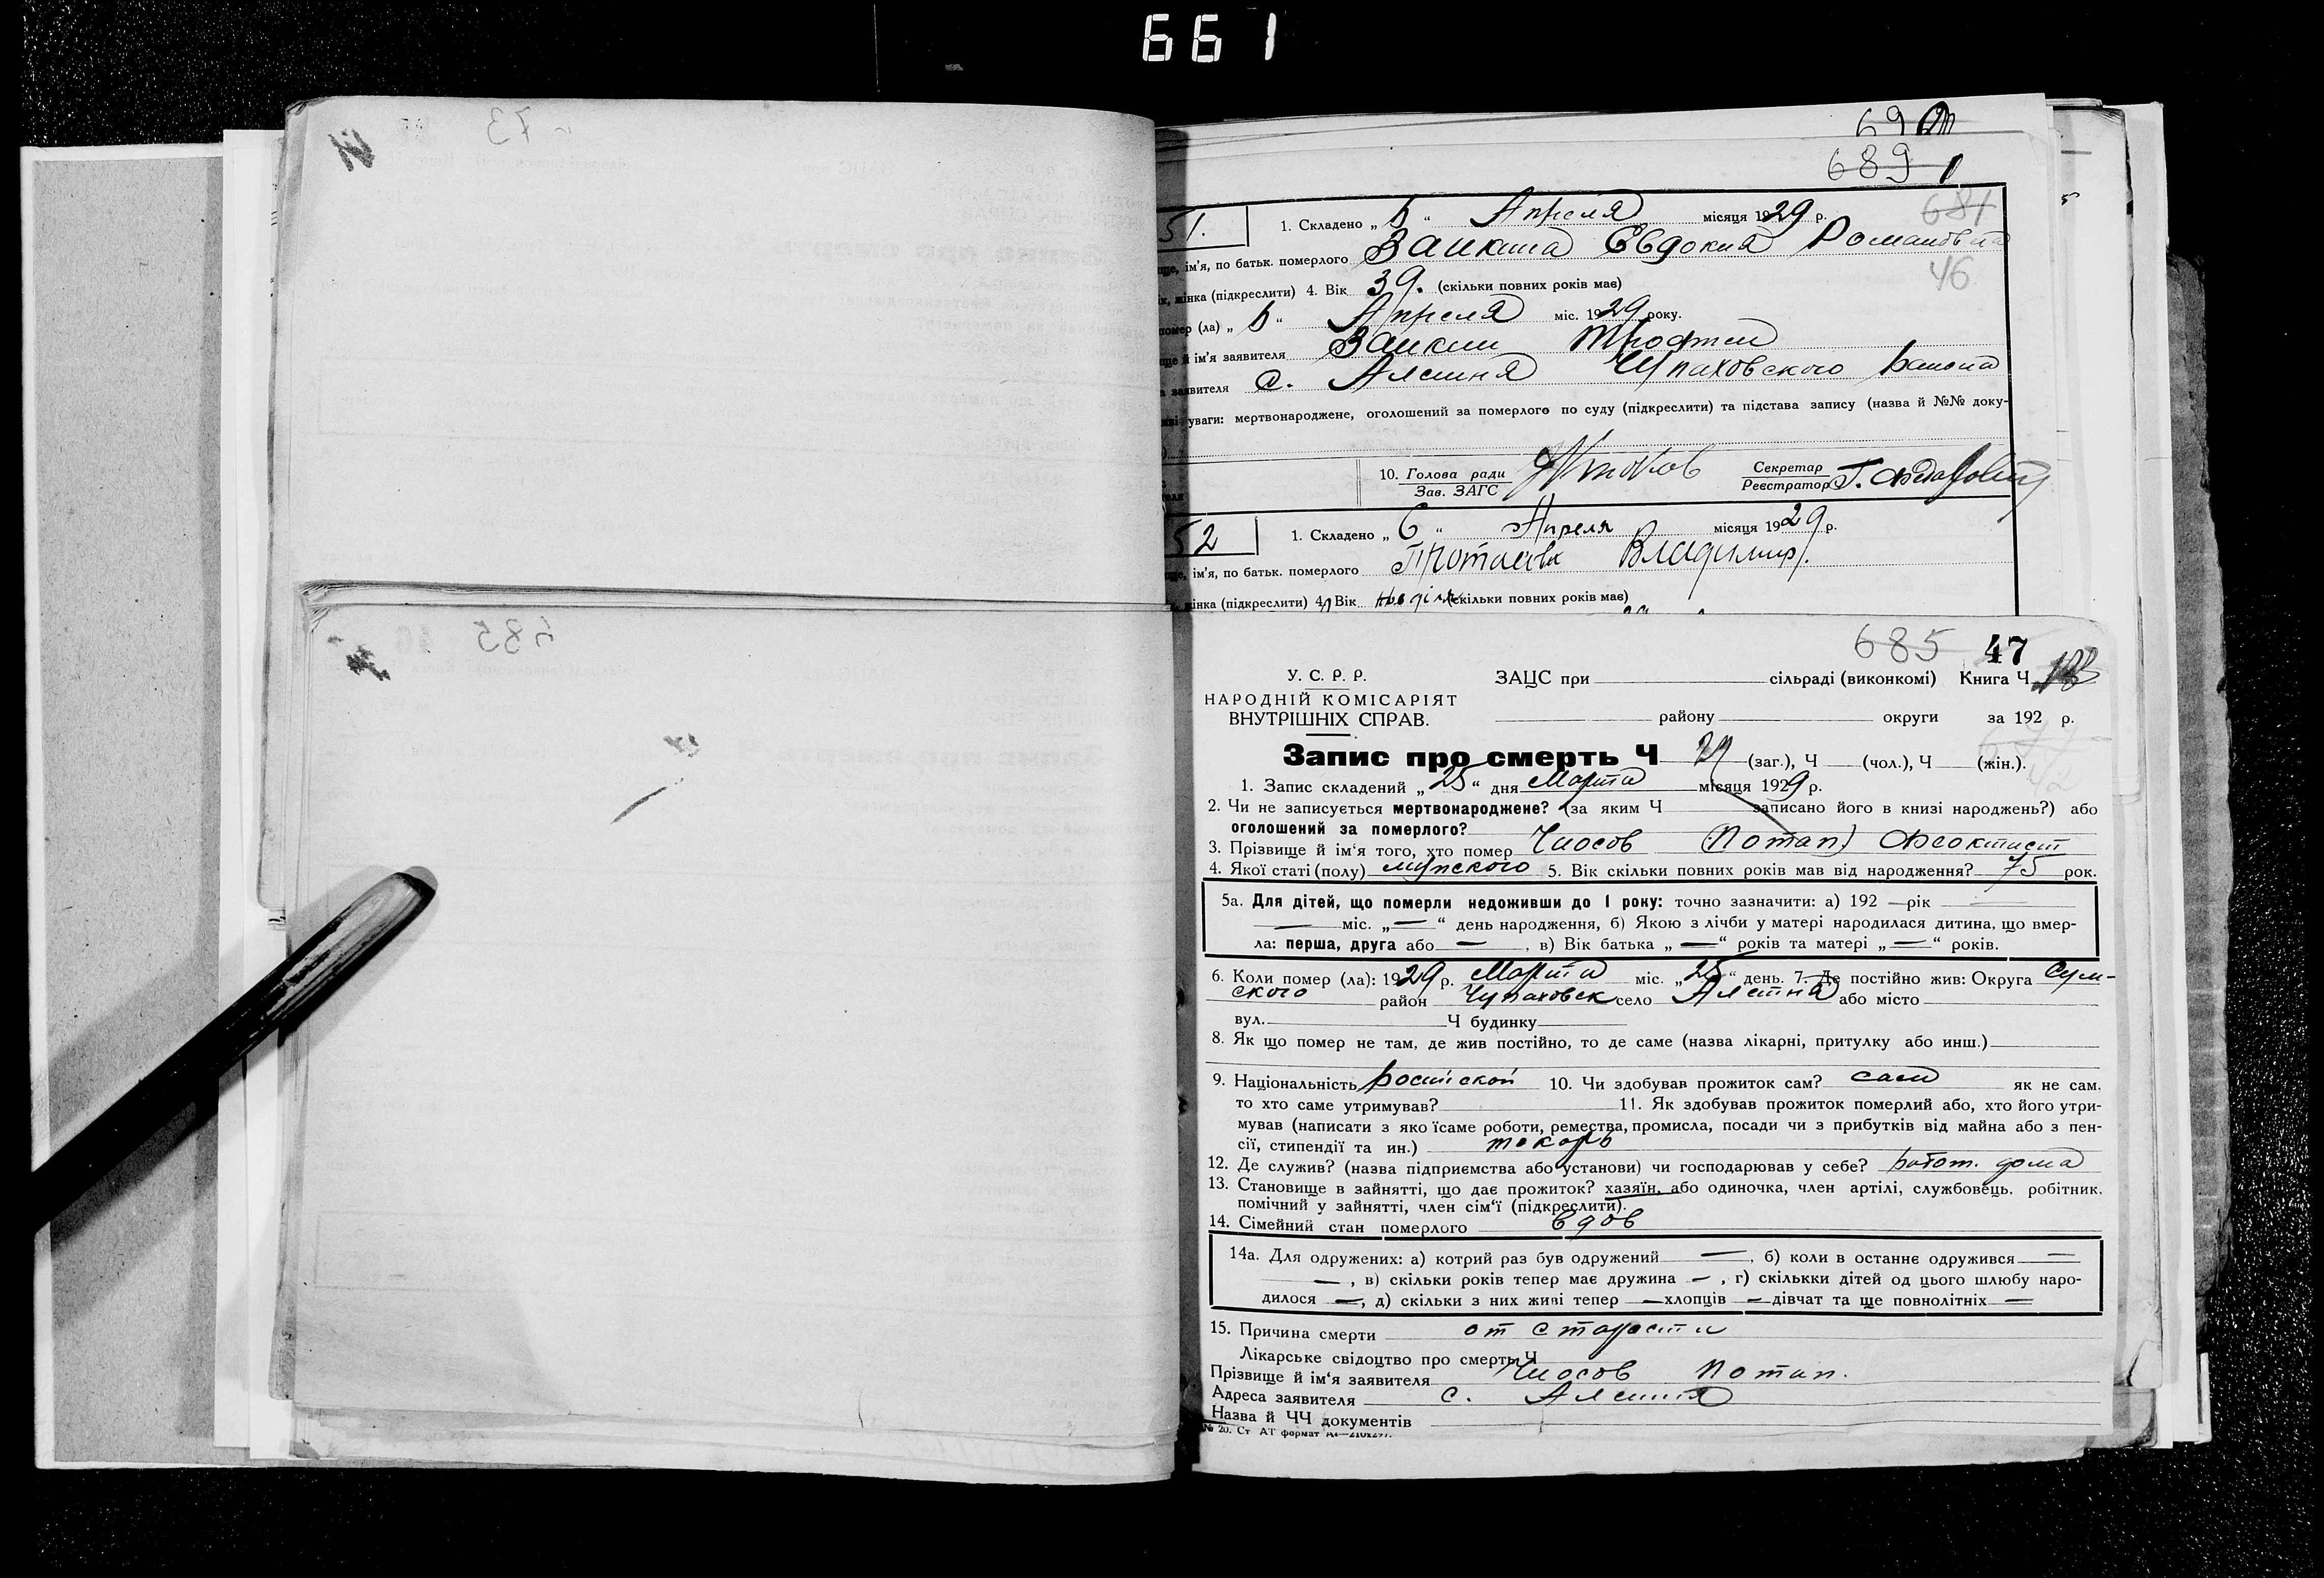 661
690
689
681
46
51. 1. Складено „ 6 “ Апреля місяця 1929 р.
ім'я, по батьк. померлого Заикина Евдокия Романовна
жінка (підкреслити) 4. Вік 39. (скільки повних років має)
помер (ла) „ 6 “ Апреля міс. 1929 року.
й ім'я заявителя Заикин Трофим
заявителя с. Алешня Чупаховского района
уваги: мертвонароджене, оголошений за померлого по суду (підкреслити) та підстава запису (назва й №№ доку-
10. Голова ради Секретар
Зав. ЗАГС Реєстратор
52 1. Складено „ 6 “ Апреля місяця 1929 р.
ім'я, по батьк. померлого Владимир
жінка (підкреслити) 4. Вік (скільки повних років має)
685 47
У. С. Р. Р. ЗАЦС при сільраді (виконкомі) Книга Ч
НАРОДНІЙ КОМІСАРІЯТ
ВНУТРІШНІХ СПРАВ. району округи за 192 р.
Запис про смерть Ч (заг.), Ч (чол.), Ч (жін.).
1. Запис складений „ 25 “ дня Марта місяця 1929 р.
2. Чи не записується мертвонароджене? (за яким Ч записано його в книзі народжень?) або
оголошений за померлого?
3. Прізвище й ім'я того, хто помер Чиосов (Потап) Феоктист
4. Якої статі (полу) мужского 5. Вік скільки повних років мав від народження? 75 рок.
5а. Для дітей, що померли недоживши до 1 року: точно зазначити: а) 192 — рік
— міс. „ — “ день народження, б) Якою з лічби у матері народилася дитина, що вмер-
ла: перша, друга або — , в) Вік батька „ — “ років та матері „ — “ років.
6. Коли помер (ла): 1929 р. Марта міс. „ 25 “ день. 7. Де постійно жив: Округа Сум-
ского район Чупаховск село Алешня або місто
вул. Ч будинку
8. Як що помер не там, де жив постійно, то де саме (назва лікарні, притулку або инш.)
9. Національність 10. Чи здобував прожиток сам? сам як не сам,
то хто саме утримував? 11. Як здобував прожиток померлий або, хто його утри-
мував (написати з яко їсаме роботи, ремества, промисла, посади чи з прибутків від майна або з пен-
сії, стипендії та ин.) токарь
12. Де служив? (назва підприємства або установи) чи господарював у себе? работ. дома
13. Становище в зайнятті, що дає прожиток? хазяїн, або одиночка, член артілі, службовець, робітник,
помічний у зайнятті, член сім'ї (підкреслити).
14. Сімейний стан померлого вдов
14а. Для одружених: а) котрий раз був одружений — , б) коли в останнє одружився —
— , в) скільки років тепер має дружина — , г) скількки дітей од цього шлюбу наро-
дилося — , д) скільки з них живі тепер — хлопців — дівчат та ще повнолітніх —
15. Причина смерти от старости
Лікарське свідоцтво про смерть Ч
Прізвище й ім'я заявителя Чиосов Потап.
Адреса заявителя с. Алешня
Назва й ЧЧ документів
№ 20. Ст АТ формат А4—210х297.